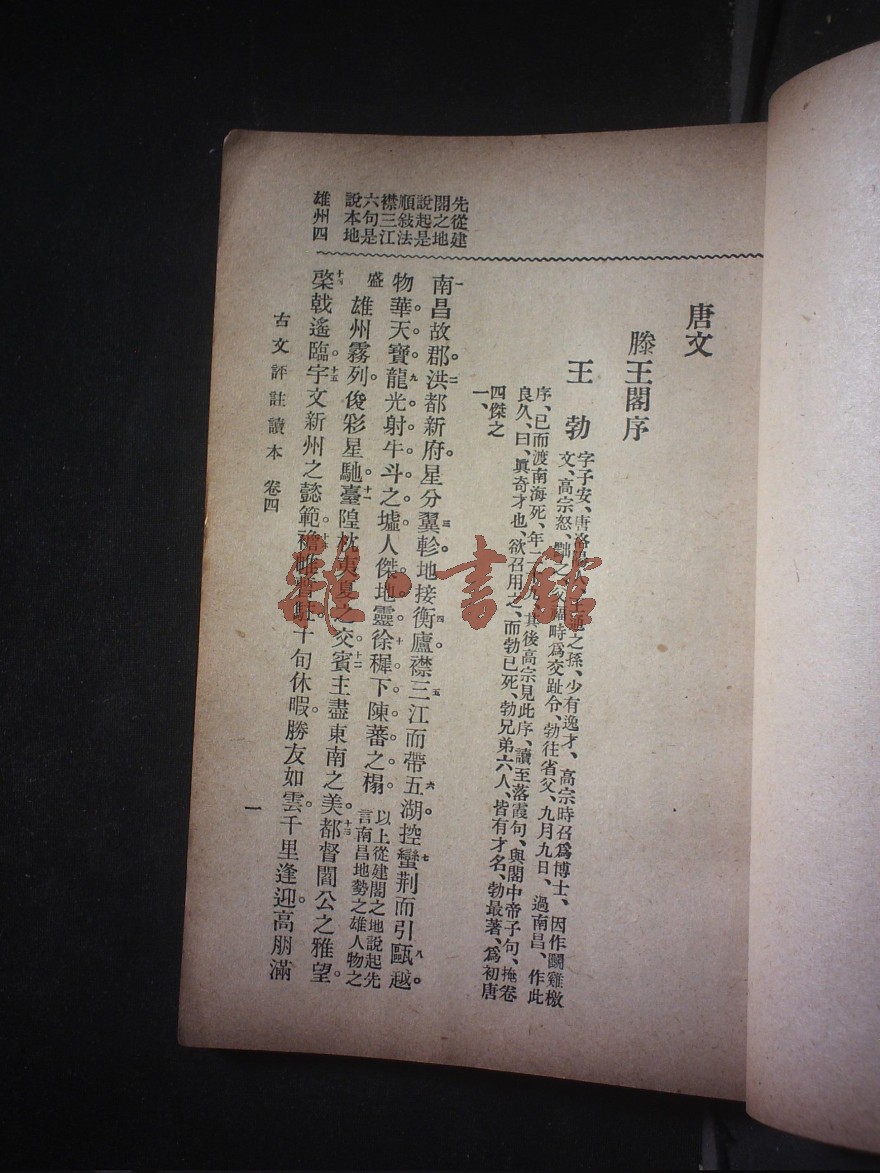 唐文
滕王閣序
王勃
字子安、唐洛陽人、王通之孫、少有逸才、高宗時召為博士、因作鬭雞檄
文、高宗怒、黜之、父福時為交趾令、勃往省父、九月九日、過南昌、作此
序、已而渡南海死、年二十九、其後高宗見此序、讀至落霞句、與閣中帝子句、掩卷
良久、曰、眞奇才也、欲召用之、而勃已死、勃兄弟六人、皆有才名、勃最著、為初唐
四傑之
一、
先從建
閣之地
說起是
順敍法
襟三江
六句是
說本地
雄州四
一南昌故郡。二洪都新府。星分翼軫。三地接衡廬。四襟三江而帶五湖。五六控蠻荆而引甌越。七八
物華天寶。龍光射牛斗之墟。九人傑地靈。徐穉下陳蕃之榻。十以上從建閣之地說起先
言南昌地勢之雄人物之
盛
雄州霧列。俊彩星馳。臺隍枕夷夏之交。十一賓主盡東南之美。十二都督閻公之雅望。十三
棨戟遙臨。十四宇文新州之懿範。十五襜帷暫駐。十旬休暇。勝友如雲。千里逢迎。高朋滿
古文評註讀本 卷四
一
雜·書館